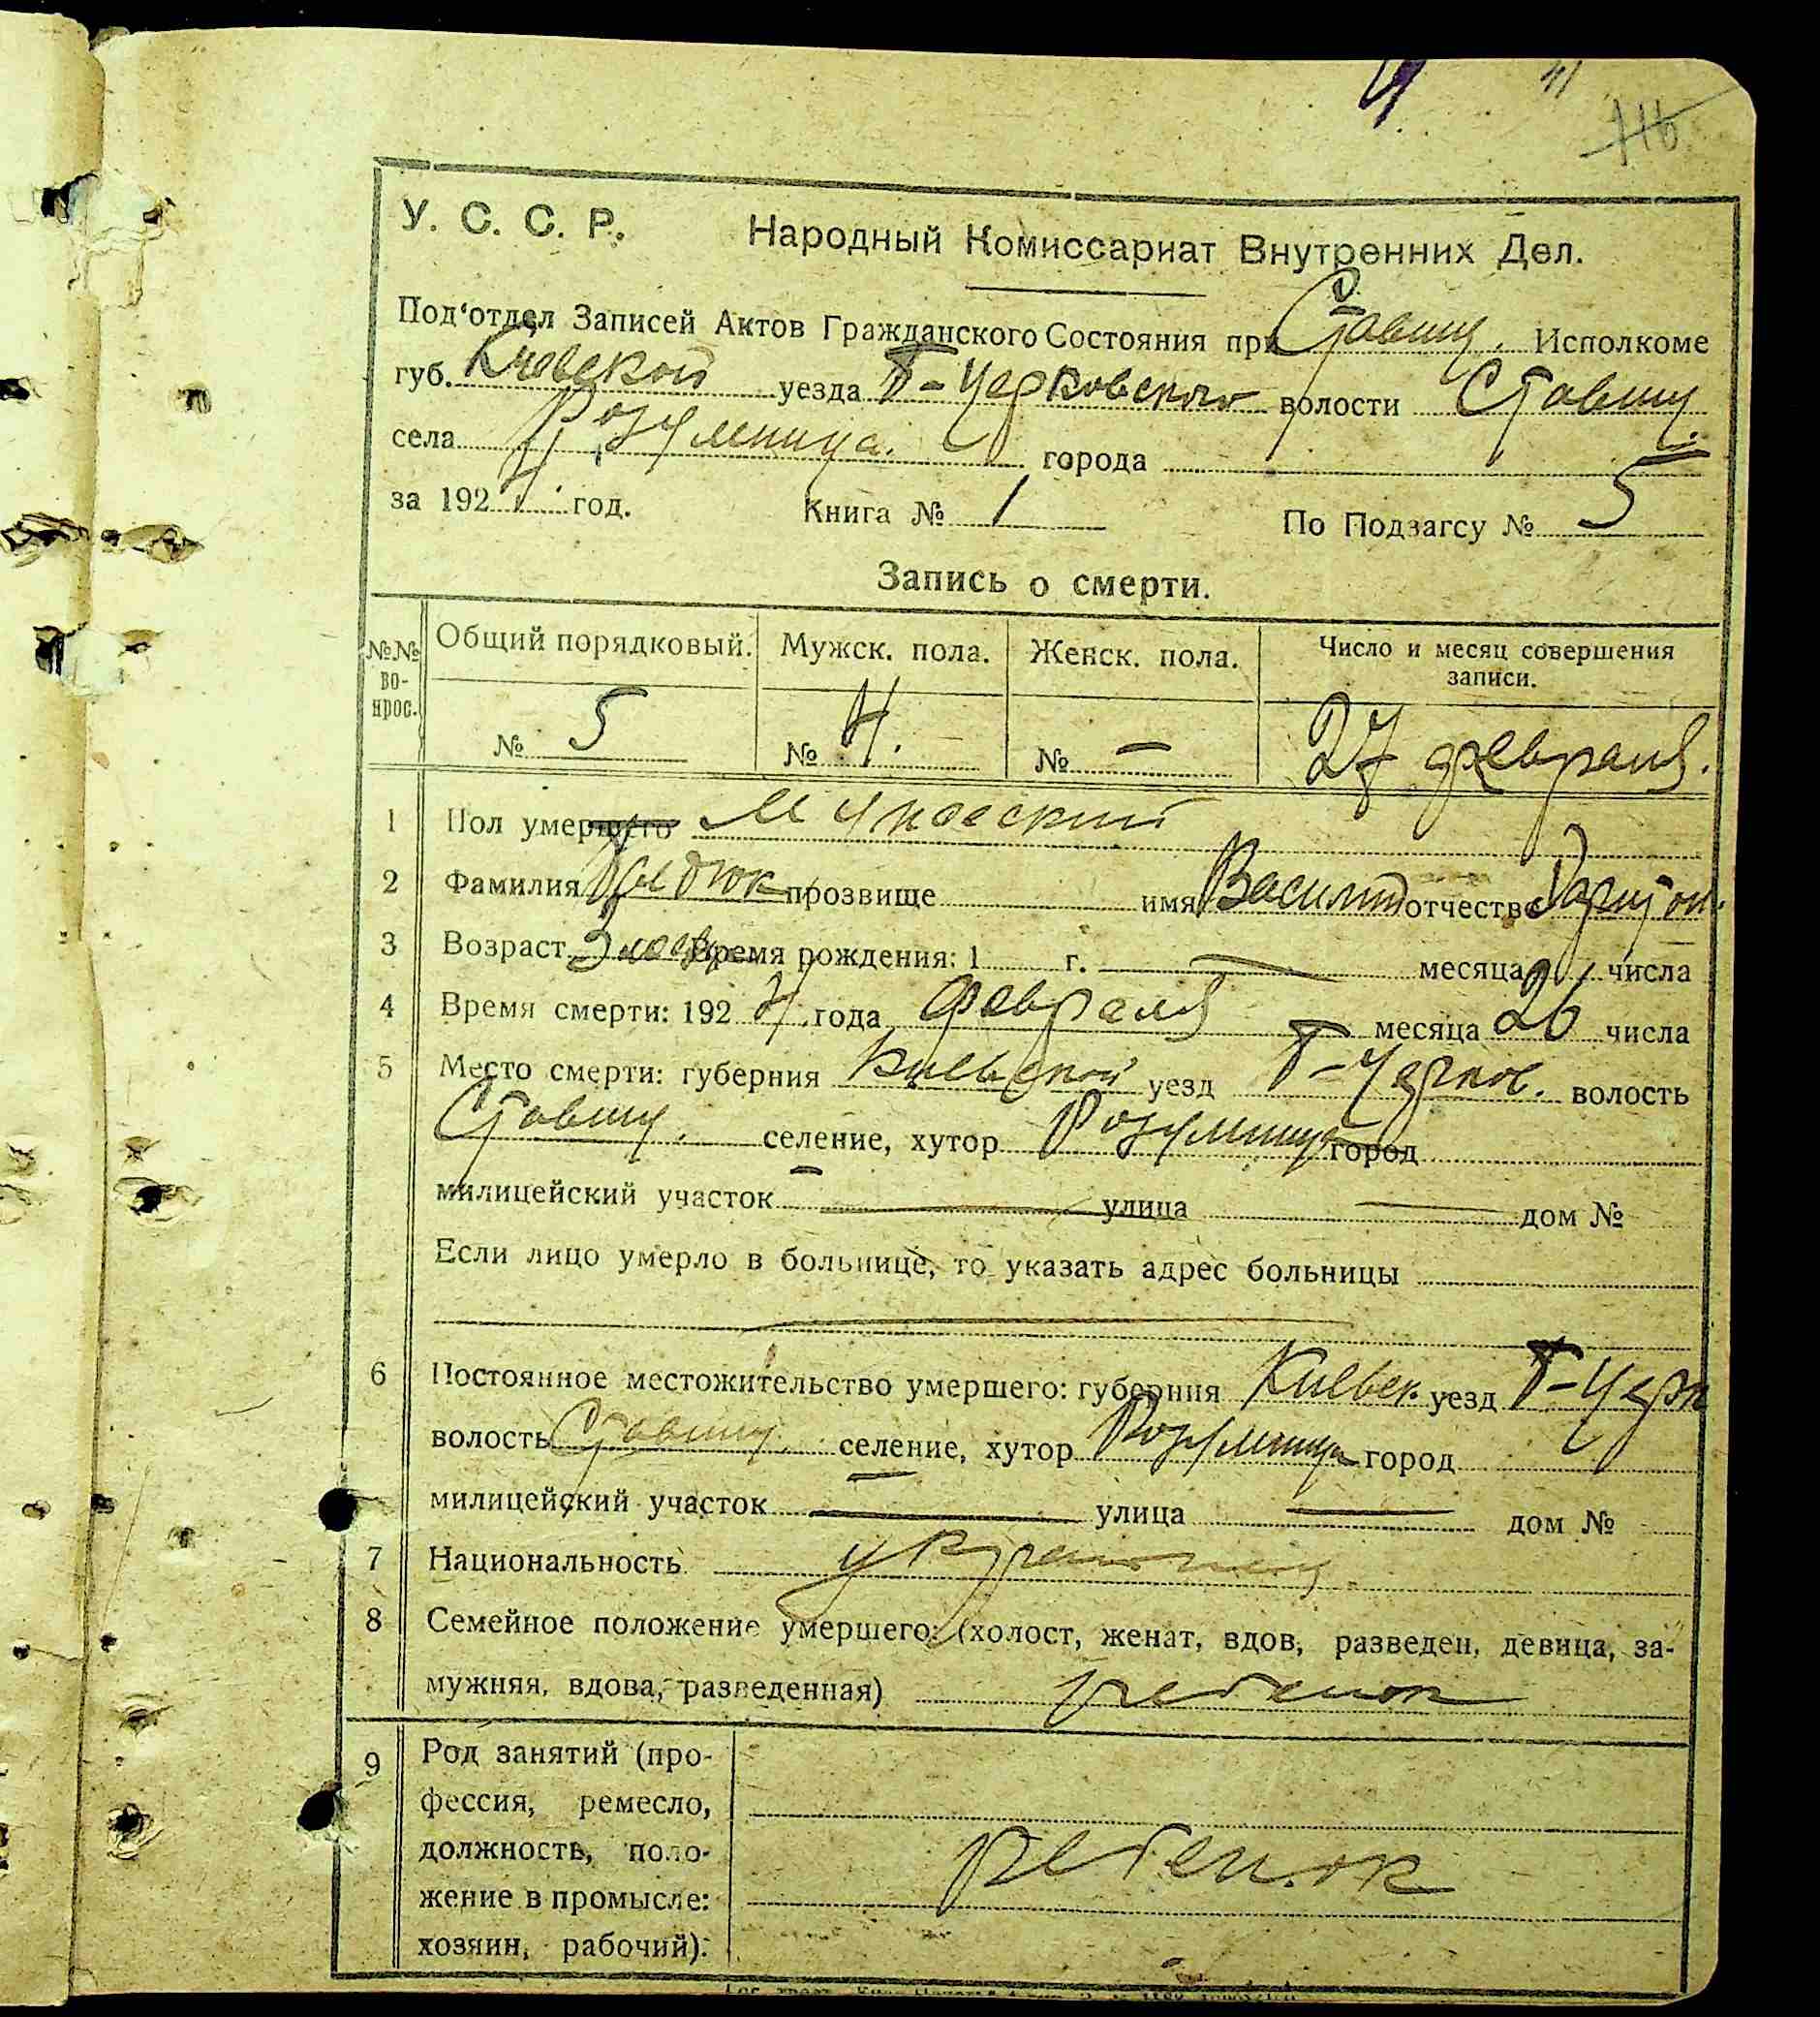 41
116
У. С. С. Р. Народный Комиссариат Внутренних Дел.
Под'отдел Записей Актов Гражданского Состояния при Ставищ. Исполкоме
губ. Киевской уезда Б-Церковского волости Ставищ.
села Розумница. города
за 1924 год. Книга № 1 По Подзагсу № 5
Запись о смерти.
№№ вопрос. Общий порядковый. Мужск. пола. Женск. пола. Число и месяц совершения записи.
№ 5 № 4. № — 27 февраля.
1 Пол умершего мужеский
2 Фамилия прозвище имя Василий отчество Харитон.
3 Возраст 3 Время рождения: 1 г. — месяца числа
4 Время смерти: 1924 года февраля месяца 26 числа
5 Место смерти: губерния Киевской уезд Б-Церков. волость
Ставищ. селение, хутор Розумница город
милицейский участок — улица — дом №
Если лицо умерло в больнице, то указать адрес больницы
6 Постоянное местожительство умершего: губерния Киевск. уезд Б-Церк
волость Ставищ. селение, хутор Розумница город
милицейский участок — улица — дом №
7 Национальность украинец.
8 Семейное положение умершего: (холост, женат, вдов, разведен, девица, за-
мужняя, вдова, разведенная) ребенок
9 Род занятий (про-
фессия, ремесло,
должность, поло- ребенок
жение в промысле:
хозяин, рабочий).